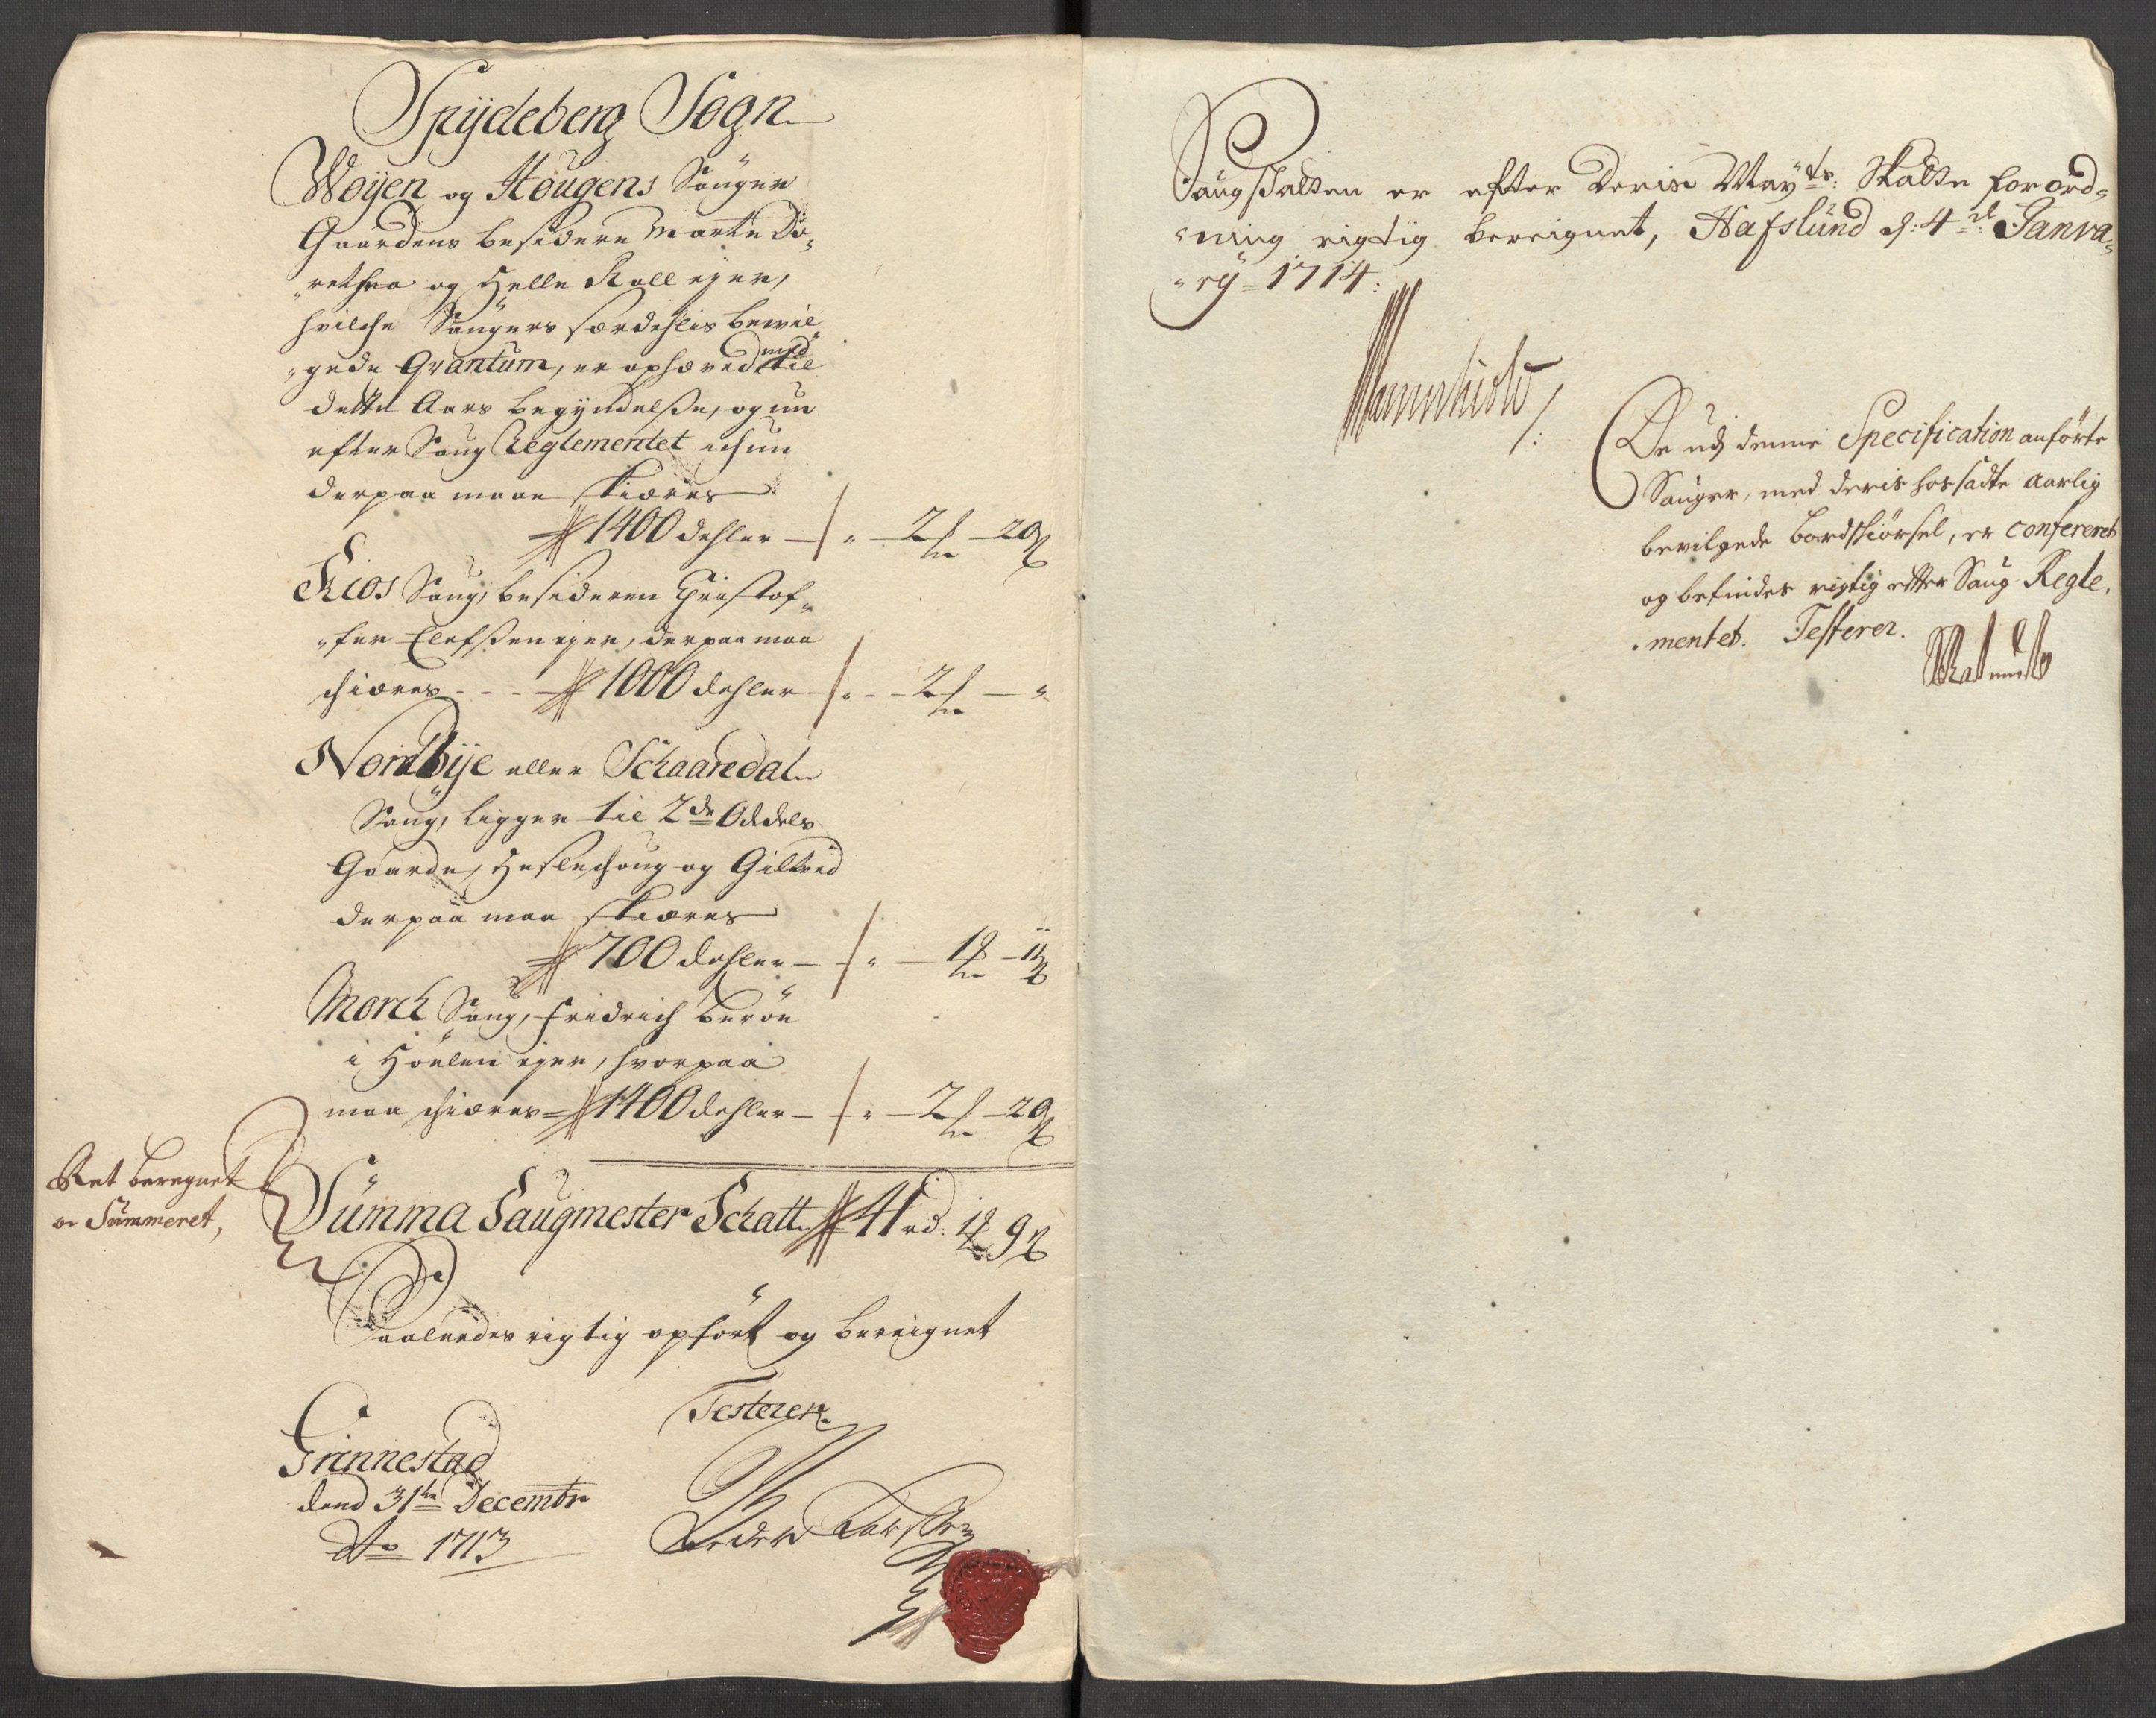 Spydeberg Sogn
Woyen og Hougens Sauger
Gaardens besidere Marte Do-
rethea og Helle Roll eger,
hvilche Saugers særdehlis bevil-
gede Qvantum, er ophæved med
dette Aars begyndelse, og nu
efter Saug Reglementet ichun
derpaa maae skiæres
1400 dehler - " - 2 - 20
Kios Saug, besideren Christof-
fer Elefsen eger, derpaa maa
skiæres - - - 1000 dehler - " - 2 - "
Nordbye eller Schaaredal
Saug, ligger til 2de Oddels
Gaarde, Haslechoug og Giltved
derpaa maa skiæres
700 dehler - " - 1
Morch Saug, Fridrich Berøe
i Hølen eger, hvorpaa
maa skiæres 1400 dehler - " - 2 - 20
Ret beregnet
og Summeret,
Summa Saugmester Schatt 41 rd: 1 9
Saaledes rigtig opført og bereignet
Testerer
Grinnestad
dend 31te Decembr
Ao 1713
Peder Larssen
Saugskatten er efter Deris Mayts: Skatte forord-
ning rigtig bereignet, Hafslund d: 4de Janva-
ry 1714:
De udj denne Specification anførte
Sauger, med deris hossadte aarlig
bevilgede bordskiørsel, er confereret
og befindes rigtig efter Saug Regle-
mentet. Testerer.